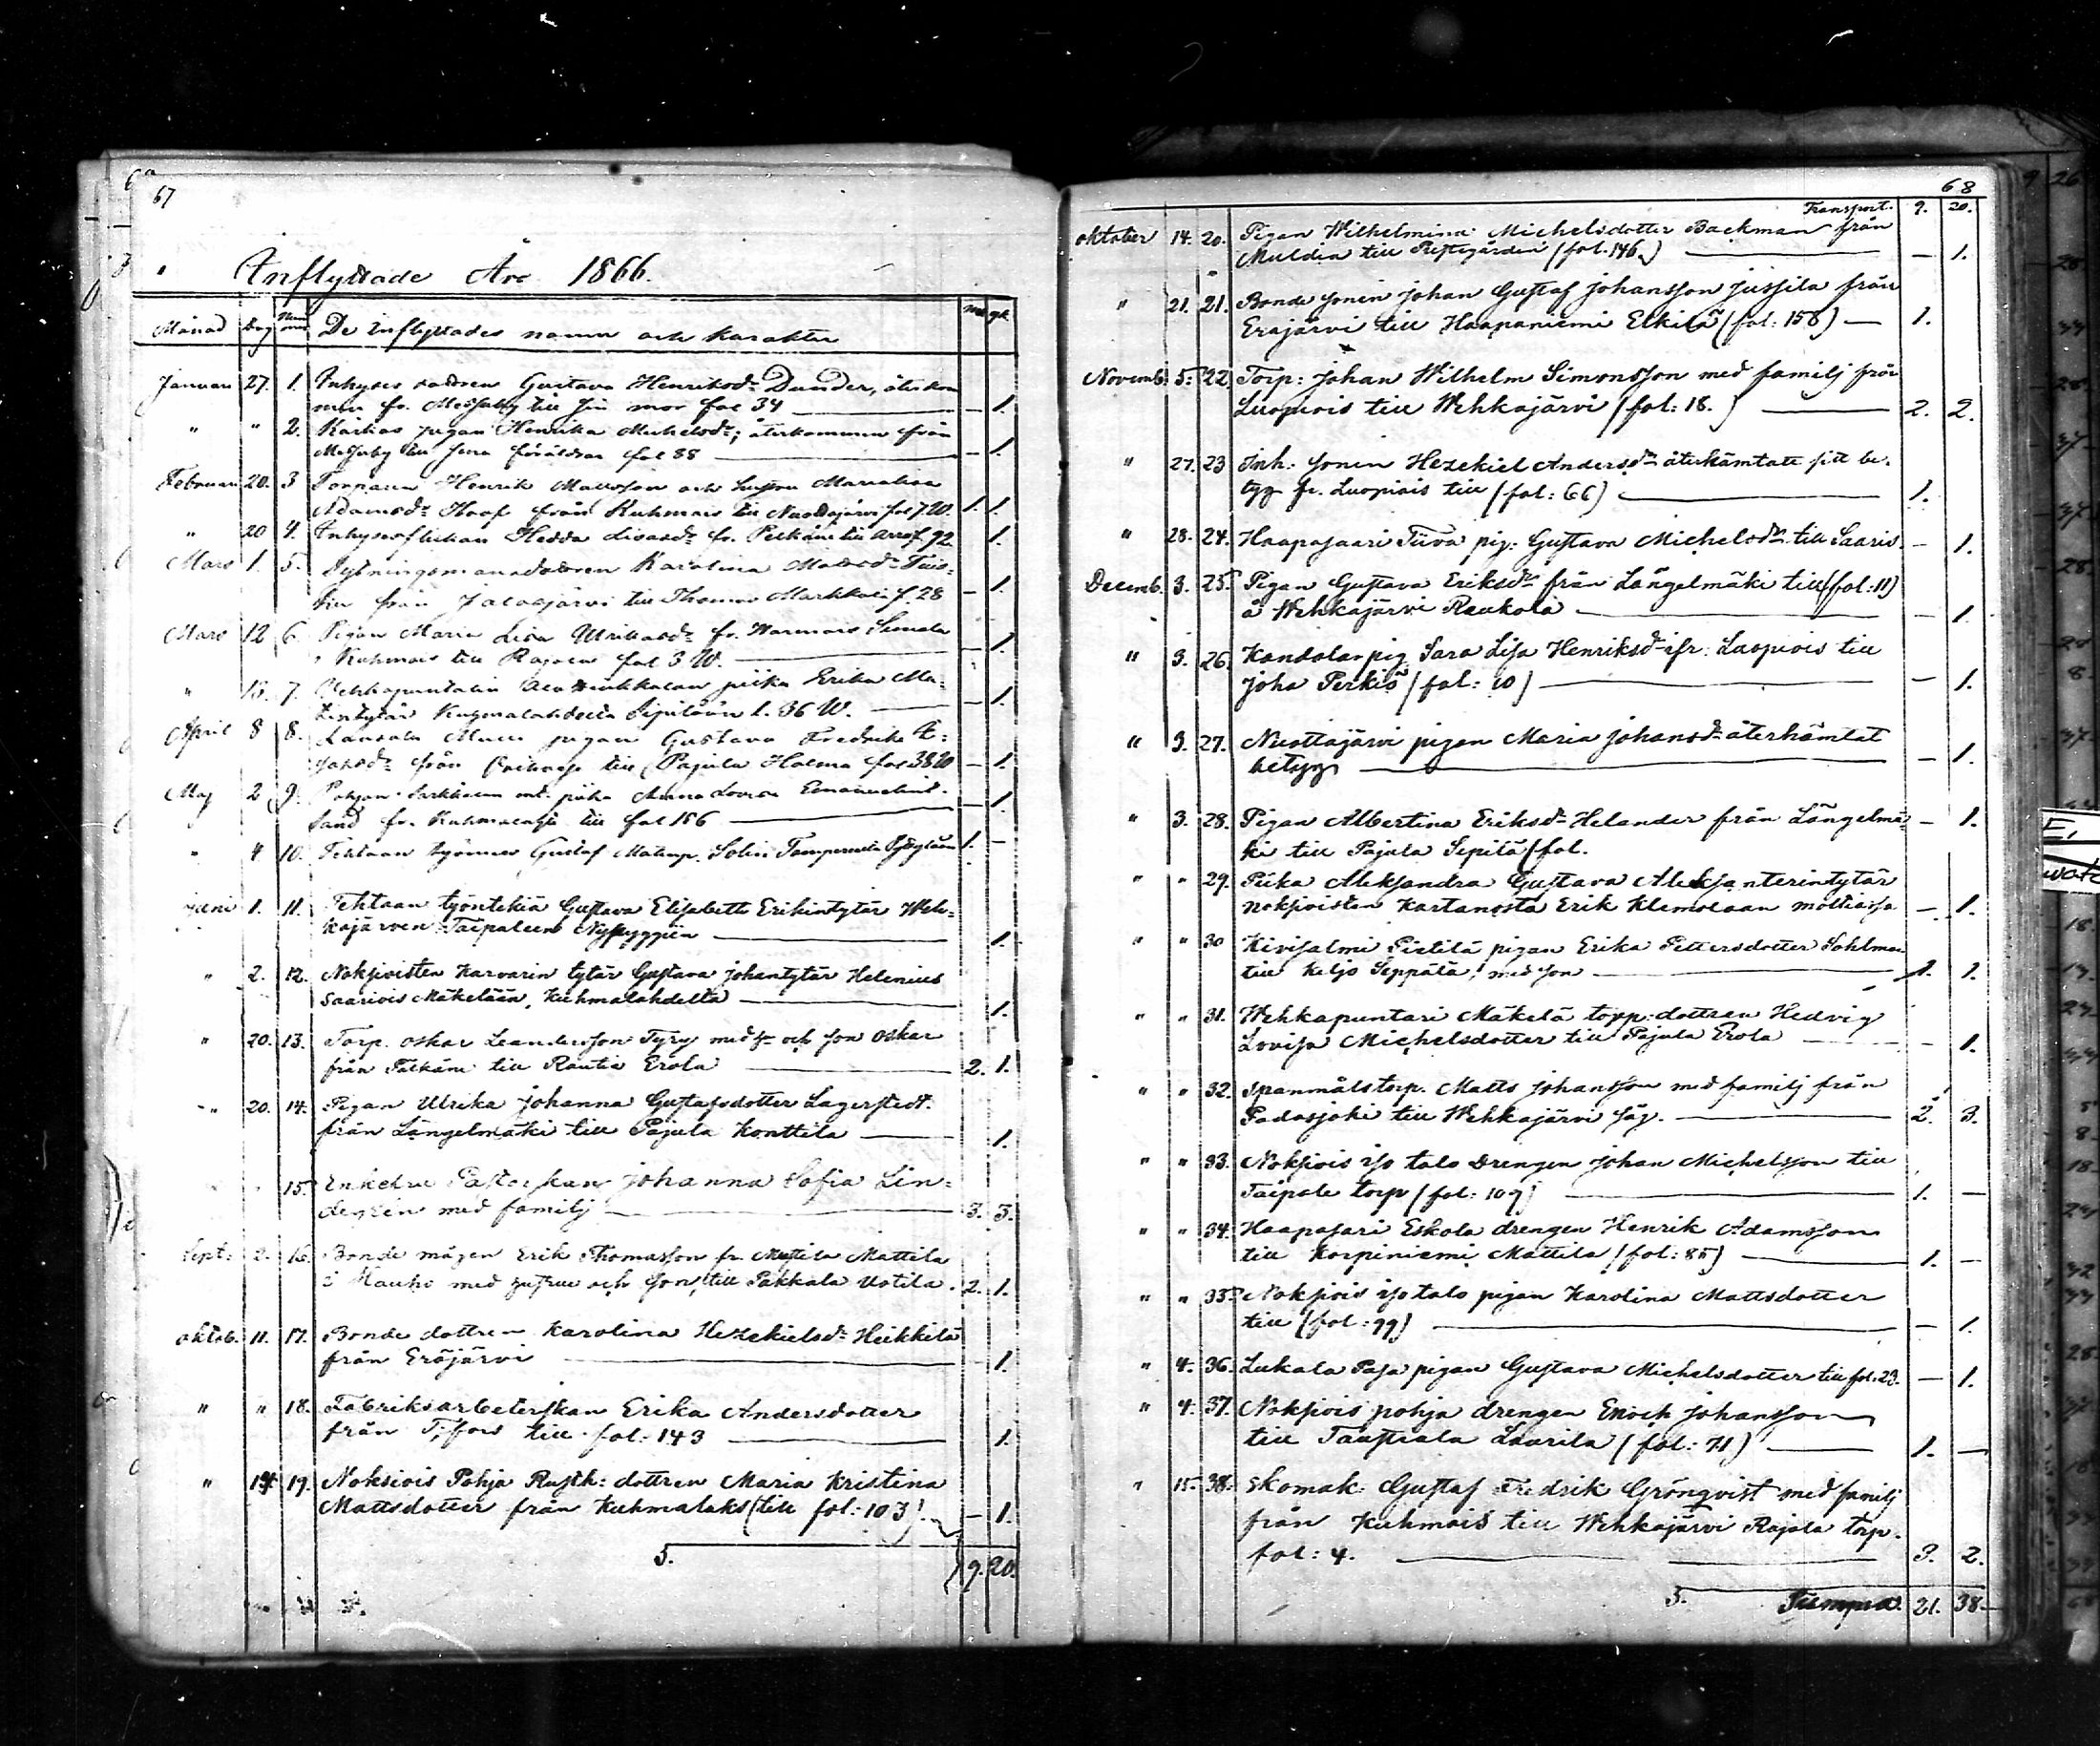 67
Inflyttade År 1866.
Månad Dag Num mer De inflyttades namn och karakter mk qk
Januari 27. 1. Inhyses dottren Gustava Henriksdr Dunder, återkom
men fr. Messuby till sin mor fol 34 — 1.
" " 2. Karkas pigan Henrika Michelsdr; återkommen från
Messuby till sina föräldrar fol 88 — 1.
Februari 20. 3 Torparen Henrik Mattsson och hustru
Adamsdr från Kuhmois till 1. 1.
" 20 4. Inhysesflickan Hedda Lisasdr fr. Pelkäne till f. 92 1.
Mars 1. 5. Karolina Mattsdr
från till Thomas Markkola f. 28 — 1.
Mars 12 6. Pigan Maria Lisa Ulrikasdr fr.
Kuhmois till fol 3 — 1.
" 13. 7. piika Erika Ma-
tintytär Kuhmalahdelta Sipilään l. 36 W. — 1.
April 8 8. pigan Gustava Fredrika
från till Pajula Holma fol — 1.
Maj 2 9. piika Anna Lovisa
fr. Kuhmalaks till fol 186 — 1.
" 4 10. Tehtaan työmies Gustaf Solin Tampereelta 1. —
Juni 1. 11. Tehtaan työntekiä Gustava Elisabetth Erikintytär Weh-
kajärven Taipaleen Nyhyggiin — 1.
" 2. 12. Noksioisten Karvarin tytär Gustava Johantytär Helenius
Saariois Mäkelään, Kuhmalahdelta — 1.
" 20. 13. Torp. Oskar Leandersson Tyry med h. och son Oskar
från Pälkäne till Rautia Erola — 2. 1.
" 20. 14. Pigan Ulrika Johanna Gustafsdotter Lagerstedt.
från Längelmäki till Pajula Konttila — 1.
15. Enkefru Pastorskan Johanna Sofia Lin-
degrén med familj — 3. 3.
Sept: 2. 16. Bonde mågen Erik Thomasson fr. Mattila
i Hauho med hustru och son, till Pakkala Uotila. 2. 1.
oktob. 11. 17. Bonde dottren Karolina Hezekielsdr Heikkilä
från Eräjärvi — 1.
" " 18. Fabriksarbeterskan Erika Andersdotter
från T:fors till fol: 143 — 1.
" 14 19. Noksiois Pohja Rusth: dottren Maria Kristina
Mattsdotter från Kuhmalaks (till fol: 103). — 1.
S. 9. 20.
68
Transport. 9. 20.
oktober 14. 20. Pigan Wilhelmina Michelsdotter Backman från
Muldia till Prestegården (fol. 146.) — 1.
" 21. 21. Bonde sonen Johan Gustaf Johansson Jussila från
Eräjärvi till Haapaniemi Elkilä (fol: 158) — 1.
Novemb: 5: 22. Torp: Johan Wilhelm Simonsson med familj från
Luopiois till Wehkajärvi (fol: 18.) — 2. 2.
" 27. 23 Inh: sonen Hezekiel Andersdr återhämtatt sitt be-
tyg fr. Luopiois till (fol: 66) — 1.
" 28. 24. Haapasaari Tuva pig: Gustava Michelsdr till Saaris. — 1.
Decemb. 3. 25. Pigan Gustava Eriksdr från Längelmäki till (fol: 11)
å Wehkajärvi Raukola — 1.
" 3. 26. Kandolar pig. Sara Lisa Henriksdr ifr: Luopiois till
Joha Perkiö (fol: 10) — 1.
" 3. 27. Nuottajärvi pigan Maria Johansdr återhämtat
betyg — 1.
" 3. 28. Pigan Albertina Eriksdr Helander från Längelmä-
ki till Pajula Sepilä (fol. — 1.
" " 29. Piika Aleksandra Gustava Aleksanterintytär
Noksioisten Kartanosta Erik Klemolaan — 1.
" " 30 Kivisalmi Pietilä pigan Erika Pettersdotter Sohlman
till Keljo Seppälä, med son — 1. 1.
" " 31. Wehkapuntari Mäkelä torp: dottren Hedvig
Lovisa Michelsdotter till Pajula Erola — 1.
" " 32. Spanmåls torp. Matts Johansson med familj från
Padasjoki till Wehkajärvi såg. — 2. 3.
" " 33. Noksiois iso talo Drengen Johan Michelsson till
Taipale torp (fol: 109) — 1. —
" " 34. Haapasari Eskola drengen Henrik Adamsson
till Korpiniemi Mattila (fol: 85) — 1. —
" " 35. Noksiois iso talo pigan Karolina Mattsdotter
till (fol: 99) — 1.
" 4. 36. Lukala Pasa pigan Gustava Michelsdotter till fol. 23. — 1.
" 4. 37. Noksiois pohja drengen Enoch Johansson
till Taustiala Laurila (fol: 71) — 1. —
" 15. 38. Skomak: Gustaf Fredrik Grönqvist med familj
från Kuhmois till Wehkajärvi Rajala torp.
fol: 4. — 3. 2.
S. Summa. 21. 38.